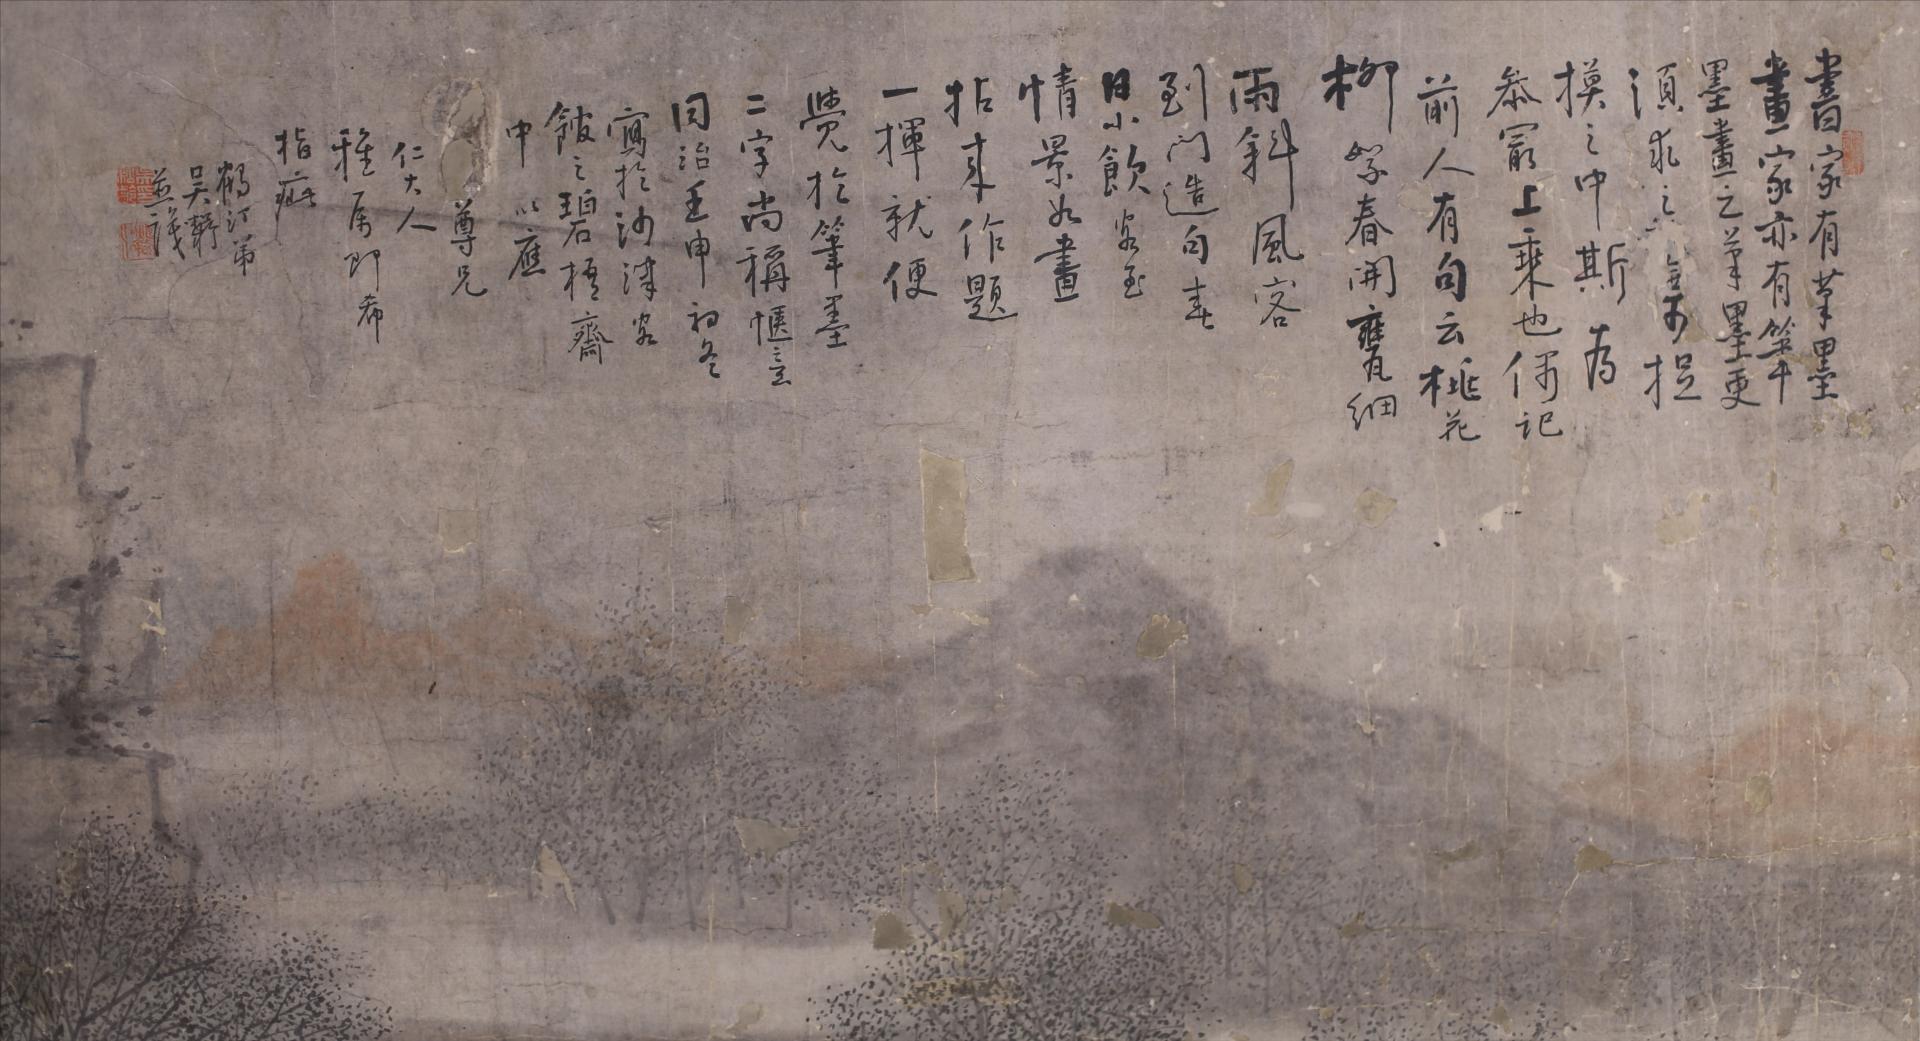 書家有筆墨
畫家亦有筆
墨畫之筆墨更
須求之捉
摸之中斯為
最上乘也偶記
前人有句云桃花
柳絮春開甕細
雨斜風客
到門造句春
日小飲客至
情景如畫
拈來作題
一揮就便
覺於筆墨
二字尚稱愜意
同治壬申初冬
寫於沙津客
館之碧梧齋
中以應
尊兄
仁大人
雅屬即希
指疵
鶴汀弟
吳
並議